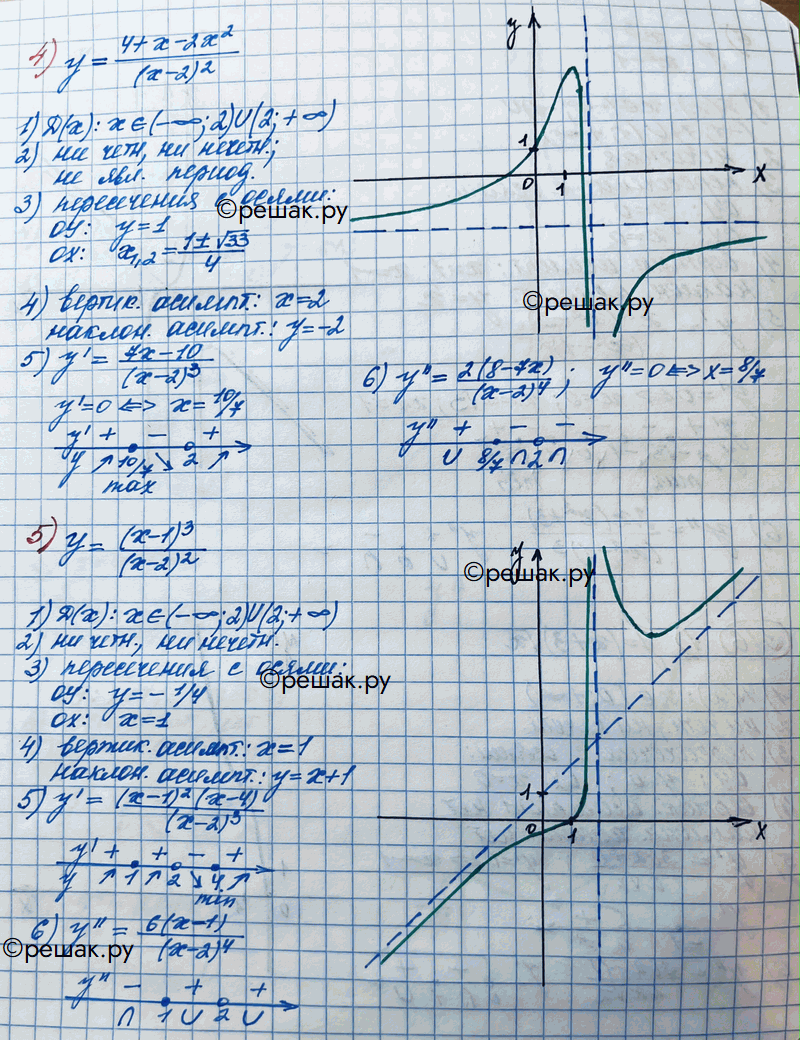 4) y = (4+x-2x²)/(x-2)²
1) D(x): x∈(-∞;2)U(2;+∞)
2) ни четн, ни нечетн.;
не явл. период.
3) пересечения с осями:
©решак.ру
oy: y=1
ox: x₁,₂ = (1±√33)/4
4) вертик. асимпт.: x=2
наклон. асимпт.: y=-2
5) y' = (7x-10)/(x-2)³
y'=0 <=> x=10/7
y' + - +
y ↗ 10/7 ↘ 2 ↗
max
y
1
0 1 x
©решак.ру
6) y'' = 2(8-7x)/(x-2)⁴; y''=0 <=> x=8/7
y'' + - -
∪ 8/7 ∩ 2 ∩
5) y = (x-1)³/(x-2)²
1) D(x): x∈(-∞;2)U(2;+∞)
2) ни четн., ни нечетн.
3) пересечения с осями:
©решак.ру
oy: y=-1/4
ox: x=1
4) вертик. асимпт.: x=1
наклон. асимпт.: y=x+1
5) y' = (x-1)²(x-4)/(x-2)³
y' + + - +
y ↗ 1 ↗ 2 ↘ 4 ↗
min
6) y'' = 6(x-1)/(x-2)⁴
©решак.ру
y'' - + +
∩ 1 ∪ 2 ∪
y
©решак.ру
1
0 1 x